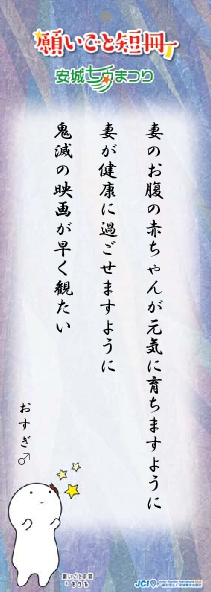 願いごと短冊
安城七夕まつり
妻のお腹の赤ちゃんが元気に育ちますように
妻が健康に過ごせますように
鬼滅の映画が早く観たい
おすぎ♂
願いごと短冊
JCI